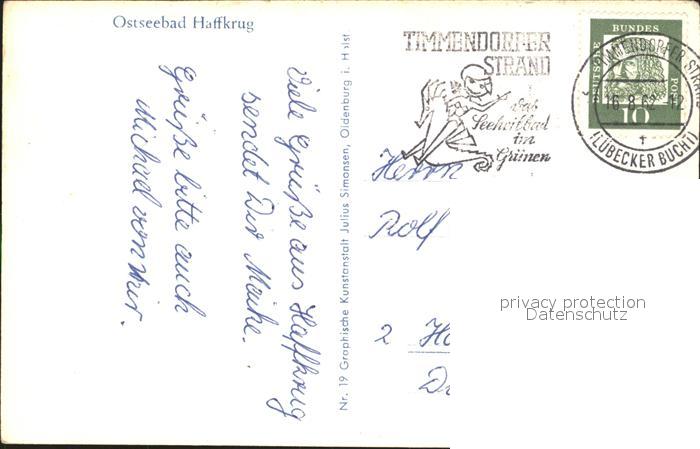 Ostseebad Haffkrug
Viele Grüße aus Haffkrug
sendet Dir Maike.
Grüße bitte auch
Michael von mir.
Nr. 19 Graphische Kunstanstalt Julius Simonsen, Oldenburg i. Holst
TIMMENDORFER
STRAND
das
Seeheilbad
im
Grünen
DEUTSCHE BUNDESPOST
10
TIMMENDORFER STRAND
16.8.62-12
(LÜBECKER BUCHT)
Herrn
Rolf
2 Ha
privacy protection
Datenschutz